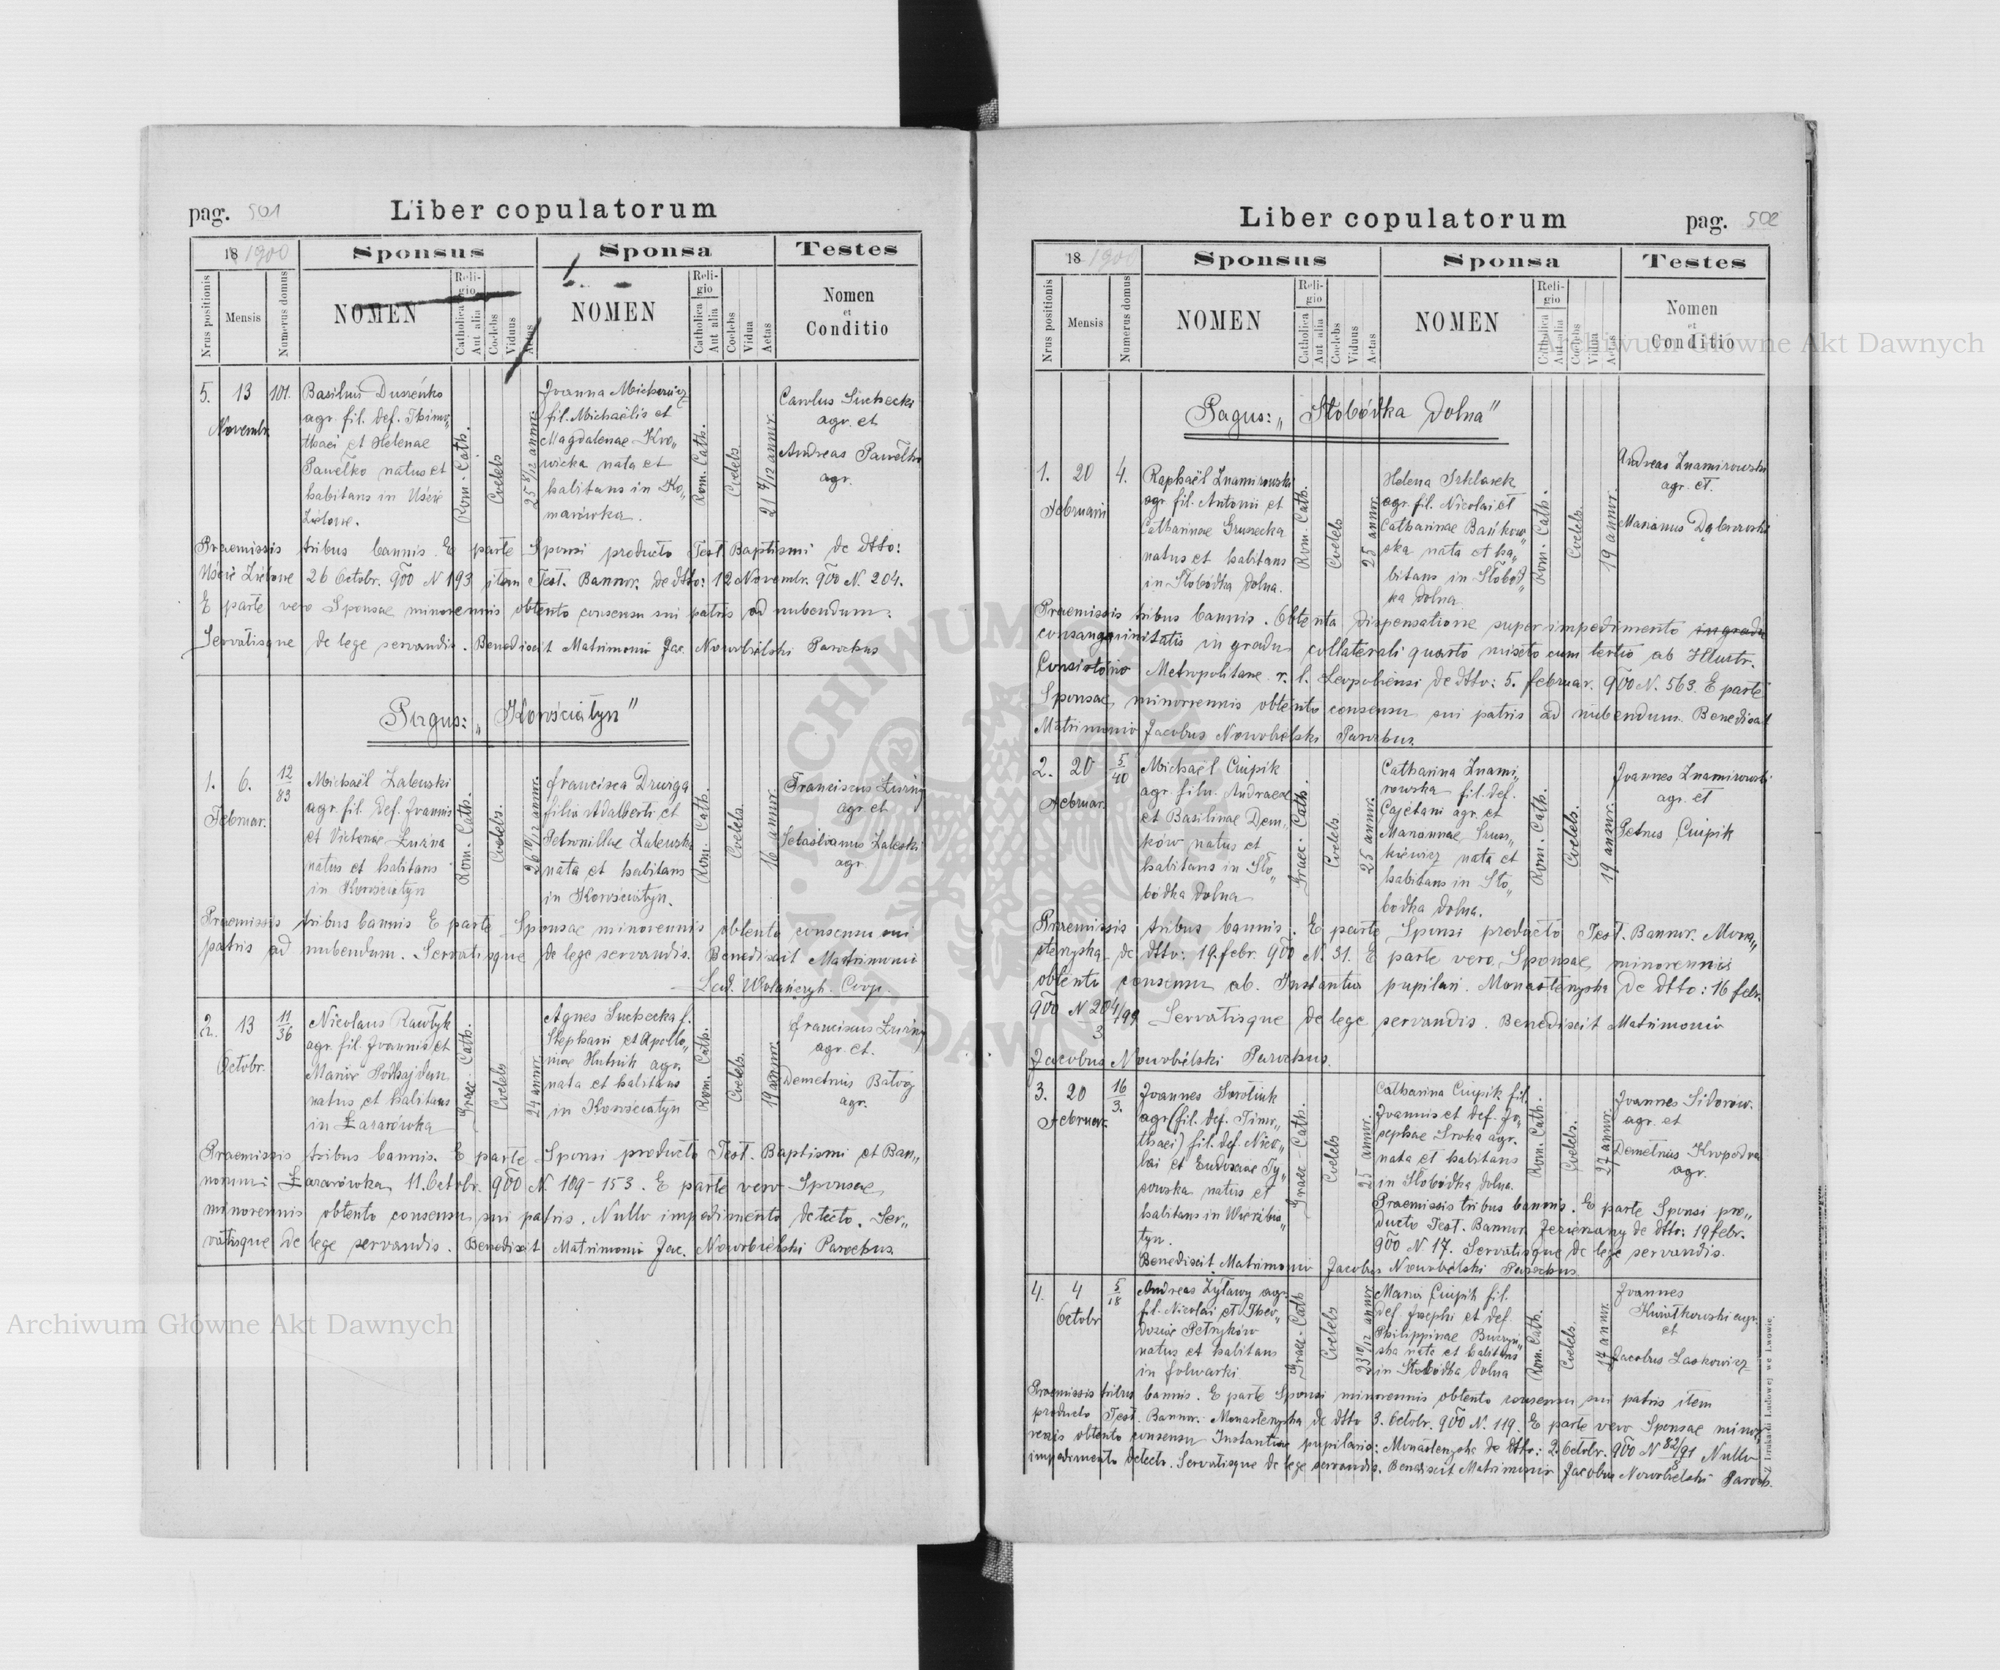 pag. 501
Liber copulatorum
18 1900
Sponsus
Sponsa
Testes
Nrus positionis
Mensis
Numerus domus
NOMEN
Religio
Catholica
Aut alia
Coelebs
Viduus
Aetas
NOMEN
Religio
Catholica
Aut alia
Coelebs
Vidua
Aetas
Nomen
et
Conditio
5. 13 101.
Novembr.
Basilius
agr. fil. def. Thimo„
thaei et Helenae
Pawełko natus et
habitans in Uście
Zielone.
Rom. Cath.
Coelebs
25 annor.
Joanna
fil. Michaëlis et
Magdalenae Kro„
wicka nata et
habitans in Ko„
marówka.
Rom. Cath.
Coelebs
21 annor.
Carolus Suchecki
agr. et
Andreas Pawełko
agr.
Praemissis tribus bannis. E parte Sponsi producto Test. Baptismi de dtto:
Uście Zielone 26 Octobr. 900 N 193 item Test. Bannor. de dtto: 12 Novembr. 900 N. 204.
E parte vero Sponsae minorennis obtento consensu sui patris ad nubendum.
Servatisque de lege servandis. Benedixit Matrimonio Jac. Nowobielski Parochus
Pagus: „Korościatyn"
1. 6. 12/83
Februar.
Michaël Zaleuski
agr. fil. def. Joannis
et Victoriae Łuźna
natus et habitans
in Korościatyn
Rom. Cath.
Coelebs.
26 10/12 annor.
Francisca Druzga
filia Adalberti et
Petronillae Zaleuska
nata et habitans
in Korościatyn.
Rom. Cath.
Coelebs.
16 annor.
Franciscus Łuźny
agr. et
Sebastianus Zaleski
agr.
Praemissis tribus bannis E parte Sponsae minorennis obtento consensu sui
patris ad nubendum. Servatisque de lege servandis. Benedixit Matrimonio
Coop.
2. 13 11/36
Octobr.
Nicolaus Rawłyk
agr. fil. Joannis et
Mariae
natus et habitans
in Łazarówka
Graec. Cath.
Coelebs
24 annor.
Agnes Suchecka f.
Stephani et Apollo„
niae Hutnik agr.
nata et habitans
in Korościatyn
Rom. Cath.
Coelebs.
19 annor.
Franciscus Łuźny
agr. et.
Demetrius Batóg
agr.
Praemissis tribus bannis. E parte Sponsi producto Test. Baptismi et Ban„
norum: Łazarówka 11. Octobr. 900 N. 109-153. E parte vero Sponsae
minorennis obtento consensu sui patris. Nullo impedimento detecto. Ser„
vatisque de lege servandis. Benedixit Matrimonio Jac. Nowobielski Parochus
Liber copulatorum
pag. 502
18 1900
Sponsus
Sponsa
Testes
Nrus positionis
Mensis
Numerus domus
NOMEN
Religio
Catholica
Aut alia
Coelebs
Viduus
Aetas
NOMEN
Religio
Catholica
Aut alia
Coelebs
Vidua
Aetas
Nomen
et
Conditio
Pagus: „Słobódka Dolna"
1. 20 4.
Februarii
Raphaël Znamirowski
agr. fil. Antonii et
Catharinae Grusecka
natus et habitans
in Słobódka dolna.
Rom. Cath.
Coelebs
25 annor.
Helena
agr. fil. Nicolai et
Catharinae Bańkow„
ska nata et ha„
bitans in Słobód„
ka dolna.
Rom. Cath.
Coelebs.
19 annor.
Andreas Znamirowski
agr. et.
Marianus Dąbrowski
Praemissis tribus bannis. Obtenta dispensatione super impedimento in gradu
consanguinitatis in gradu collaterali quarto mixto cum tertio ab Illustr.
Consistorio Metropolitano r. l. Leopoliensi de dtto: 5. februar. 900 N. 563. E parte
Sponsae minorennis obtento consensu sui patris ad nubendum. Benedixit
Matrimonio Jacobus Nowobielski Parochus
2. 20 5/40
Februar.
Michaël Ciupik
agr. filu. Andraeae
et Basilinae Dem„
ków natus et
habitans in Sło„
bódka dolna
Graec. Cath.
Coelebs.
25 annor.
Catharina Znami„
rowska fil. def.
Cajetani agr. et
Mariannae Srusz„
kiewicz nata et
habitans in Sło„
bódka dolna.
Rom. Cath.
Coelebs.
19 annor.
Joannes Znamirowski
agr. et
Petrus Ciupik
Praemissis tribus bannis. E parte Sponsi producto Test. Bannor. Mona„
sterzyska de dtto: 19. febr. 900 N. 31. E parte vero Sponsae minorennis
obtento consensu ab. Instantia pupilari. Monasterzyska de dtto: 16 febr.
900 N 204/99 3 Servatisque de lege servandis. Benedixit Matrimonio
Jacobus Nowobielski Parochus.
3. 20 16/3.
Februar.
Joannes
agr. (fil. def. Timo„
thaei) fil. def. Nico„
lai et Eudosiae
natus et
habitans in
tyn.
Graec-Cath.
Coelebs
25 annor.
Catharina Ciupik fil.
Joannis et def. Jo„
sephae Sroka agr.
nata et habitans
in Słobódka dolna.
Rom. Cath.
Coelebs.
27 annor.
Joannes Sidorów.
agr. et
Demetrius
agr.
Praemissis tribus bannis. E parte Sponsi pro„
ducto Test. Bannor. Jezierzany de dtto: 19 febr.
900 N 17. Servatisque de lege servandis.
Benedixit Matrimonio Jacobus Nowobielski Parochus
4. 4 5/18
Octobr
Andreas Żyławy agr.
fil. Nicolai et Theo„
dosiae Petryków
natus et habitans
in folwarki
Graec-Cath
Coelebs
23 10/12 annor.
Maria Ciupik fil.
def. Josephi et def.
Philippinae
nata et habitans
in Słobódka dolna
Rom. Cath.
Coelebs.
annor.
Joannes
Kwiatkowski agr.
et
Jacobus Laskowicz
Praemissis tribus bannis. E parte Sponsi minorennis obtento consensu sui patris item
producto Test. Bannor. Monasterzyska de dtto 3. Octobr. 900 N. 119. E parte vero Sponsae mino„
rennis obtento consensu Instantiae pupilaris: Monasterzyska de dtto: 2. Octobr. 900 N 82/91 Nullo
impedimento detecto. Servatisque de lege servandis. Benedixit Matrimonio Jacobus Nowobielski Paroch.
Z Drukarni Ludowej we Lwowie.
Archiwum Główne Akt Dawnych
Archiwum Główne Akt Dawnych
ARCHIWUM GŁÓWNE AKT DAWNYCH